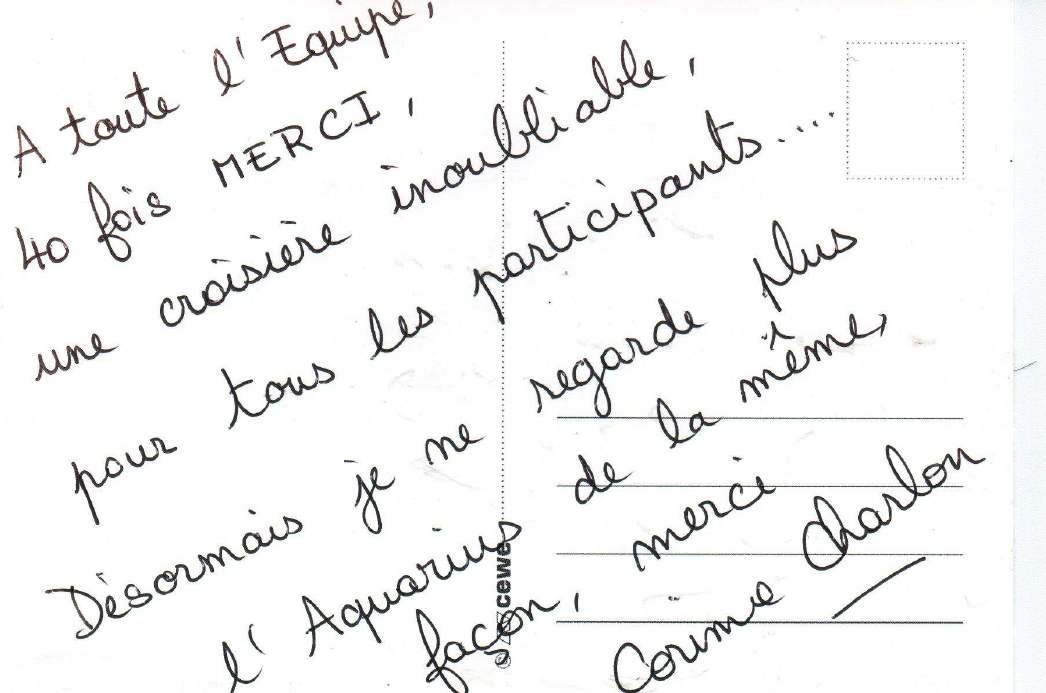 A toute l'Equipe,
40 fois MERCI,
une croisière inoubliable,
pour tous les participants....
Désormais je ne regarde plus
l'Aquarius de la même
façon, merci
Corinne Charlon
cewe